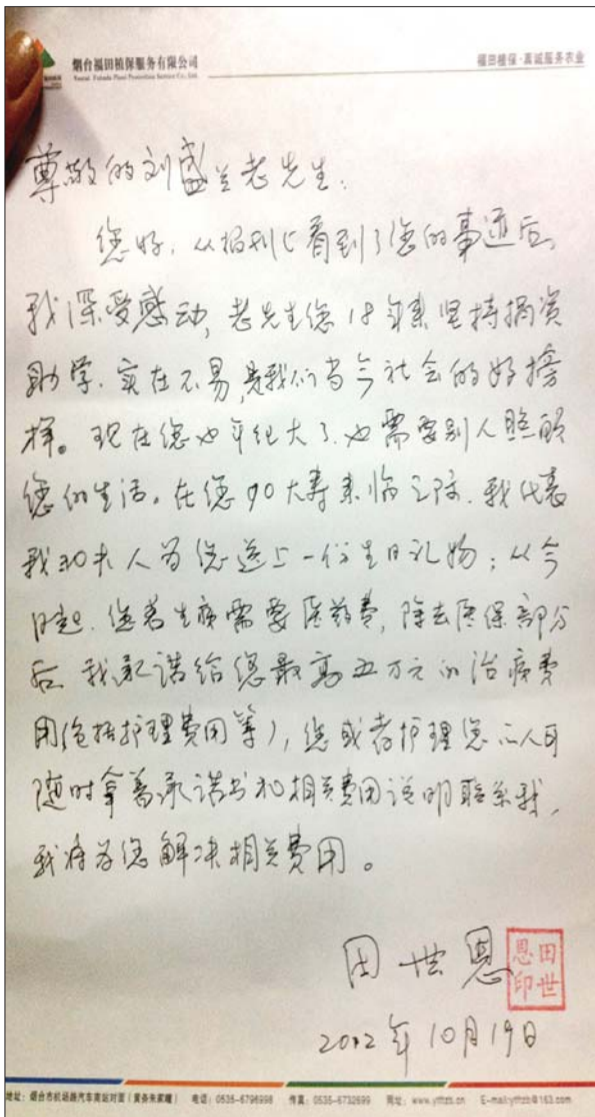 烟台福田植保服务有限公司
Yantai Futian Plant Protection Service Co., Ltd.
福田植保·真诚服务农业
尊敬的刘盛兰老先生:
您好,从报刊上看到了您的事迹后,
我深受感动,老先生您18年来坚持捐资
助学,实在不易,是我们当今社会的好榜
样。现在您也年纪大了,也需要别人照顾
您的生活。在您90大寿来临之际,我代表
我和夫人为您送上一份生日礼物:从今
日起,您若生病需要医药费,除去医保部分
后,我承诺给您最高五万元的治疗费
用(包括护理费用等),您或者护理您的人可
随时拿着承诺书和相关费用说明联系我,
我将为您解决相关费用。
田世恩
田世恩印
2012年10月19日
地址:烟台市机场路汽车南站对面(黄务朱家疃) 电话:0535-6796998 传真:0535-6732699 网址:www.ytftzb.cn E-mail:ytftzb@163.com